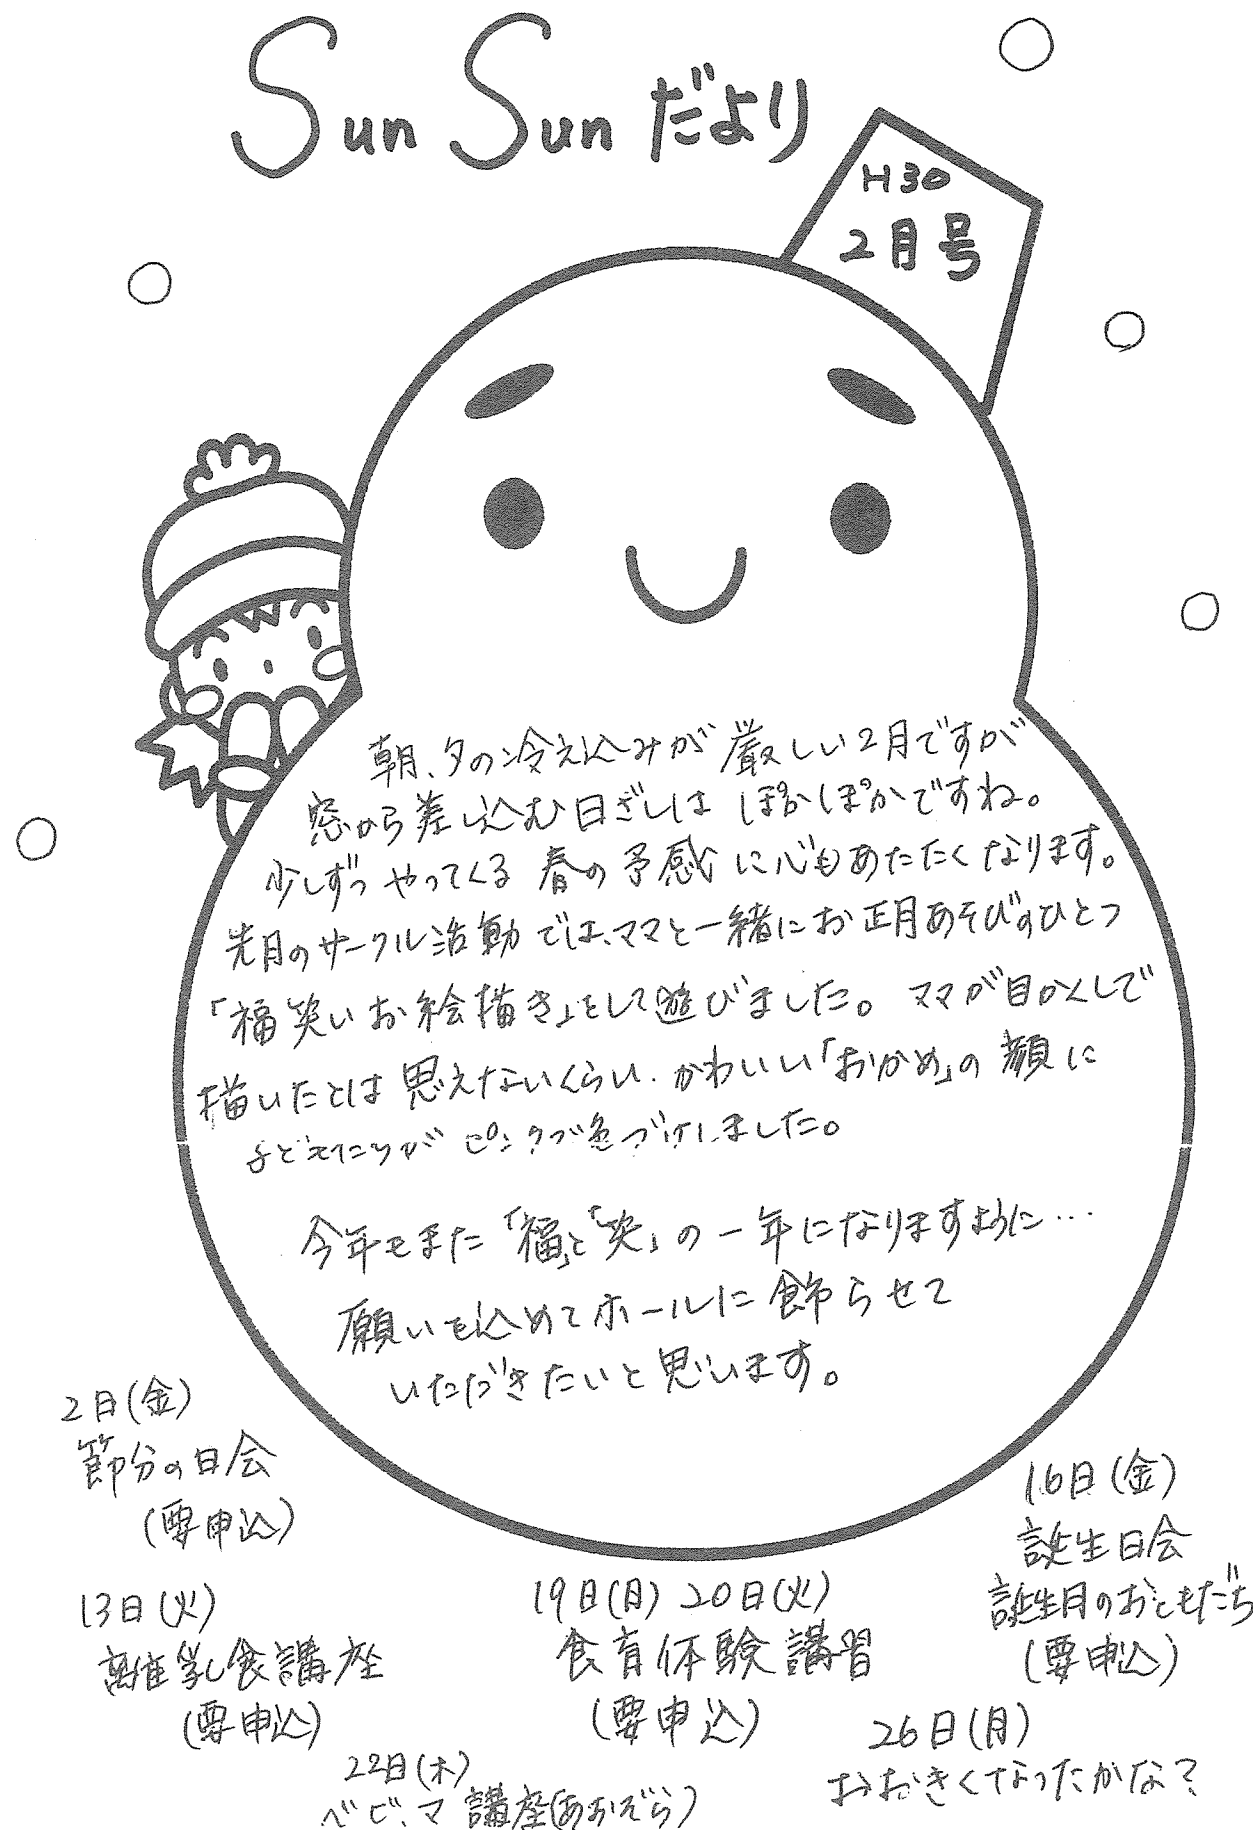 Sun Sun だより
H30
2月号
朝、夕の冷え込みが厳しい2月ですが
窓から差し込む日ざしは ぽかぽかですね。
少しずつ やってくる 春の予感に心もあたたくなります。
先月のサークル活動では、ママと一緒にお正月あそびのひとつ
「福笑いお絵描き」をして遊びました。ママが目かくしで
描いたとは思えないくらい、かわいい「おかめ」の顔に
子どもたちが ピンクで色づけしました。
今年もまた「福」と「笑」の一年になりますように…
願いを込めてホールに飾らせて
いただきたいと思います。
2日(金)
節分の日会
(要申込)
13日(火)
離乳食講座
(要申込)
19日(日) 20日(火)
食育体験講習
(要申込)
16日(金)
誕生日会
誕生月のおともだち
(要申込)
22日(木)
ベビ、マ 講座(あおぞら)
26日(月)
おおきくなったかな?